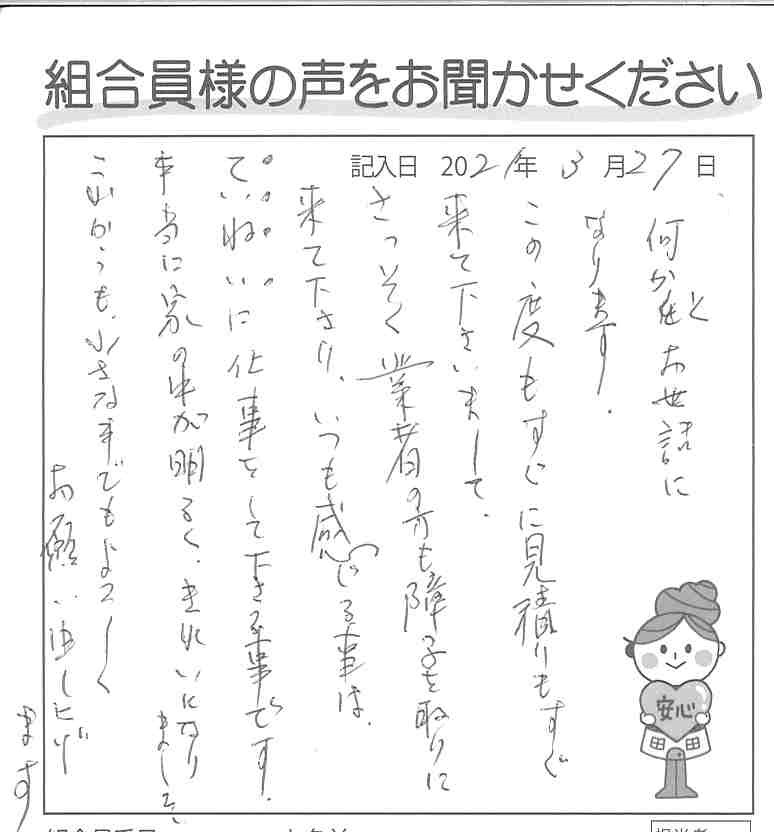 組合員様の声をお聞かせください
記入日 2021年 3月27日
何かとお世話に
なります.
この度もすぐに見積りもすぐ
来て下さいまして.
さっそく業者の方も障子を取りに
来て下さり、いつも感じる事は、
ていねいに仕事をして下さる事です.
本当に家の中が明るく、きれいになりました
これからも、小さな事でもよろしく
お願い申し上げ
ます
安心